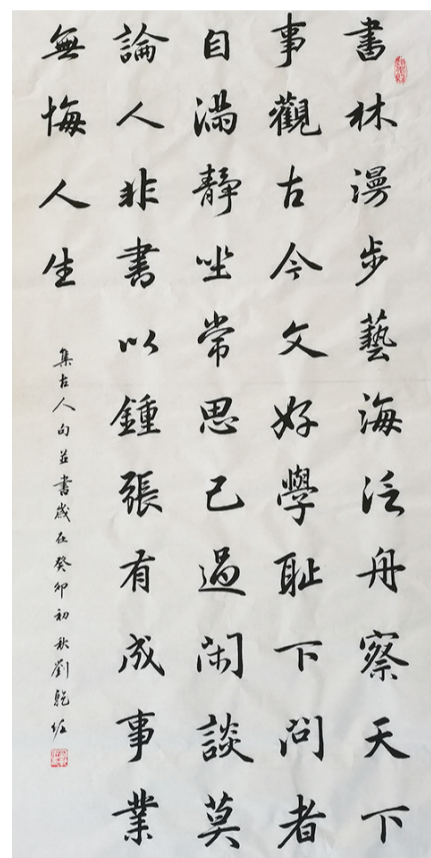 書林漫步藝海泛舟察天下
事觀古今文好學耻下問者
自滿靜坐常思己過閑談莫
論人非書以鍾張有成事業
無悔人生
集古人句並書歲在癸卯初秋劉乾